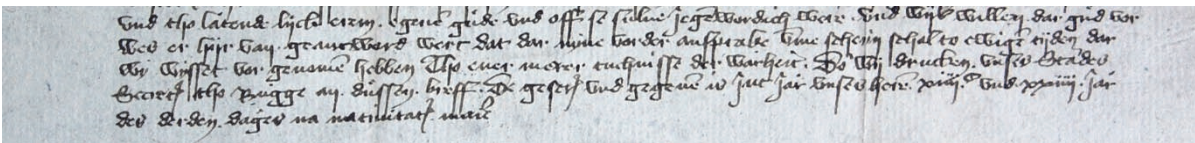 vnd tho latende lyck erem egene gude vnd offt se sulue jegenwordich were. vnd wy willen dar gud vor
wes er hyr van geantword wert dat dar nyne vorder ansprake vme schen schal to ewigen tyden dar
wy vor genomen hebben Tho ener merer tuchnisse der warheit. So wy drucken vnses Stades
Secret tho Rugge an dussen breff. De geset vnd gegeuen is int jar vnses heren xiiii c vnd xxiiii jar
des derden dages na natiuitatis marie